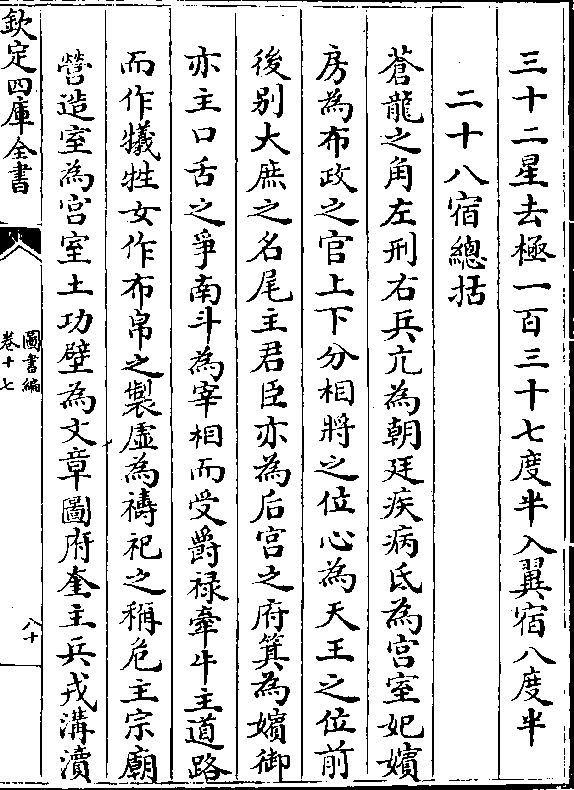 三十二星去極一百三十七度半入翼宿八度半
二十八宿總括
蒼龍之角左刑右兵亢為朝廷疾病氐為宫室妃嬪
房為布政之官上下分相將之位心為天王之位前
後别大庶之名尾主君臣亦為后宫之府箕為嬪御
亦主口舌之爭南斗為宰相而受爵禄牽牛主道路
而作犧牲女作布帛之製虚為禱祀之稱危主宗廟
營造室為宫室土功壁為文章圖府奎主兵戎溝瀆
欽定四庫全書
圖書編
卷十七
八十